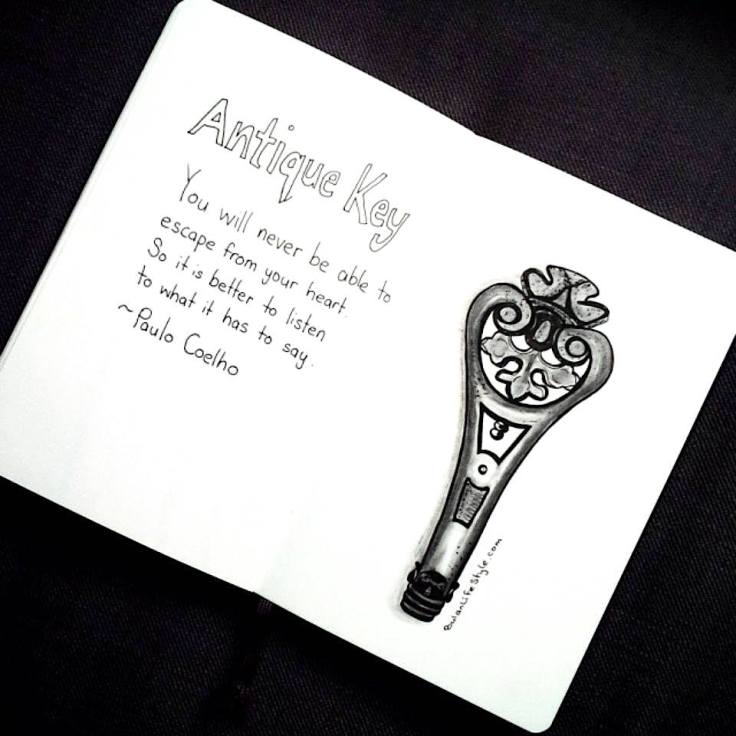 Antique Key
You will never be able to
escape from your heart.
So it is better to listen
to what it has to say.
~Paulo Coelho